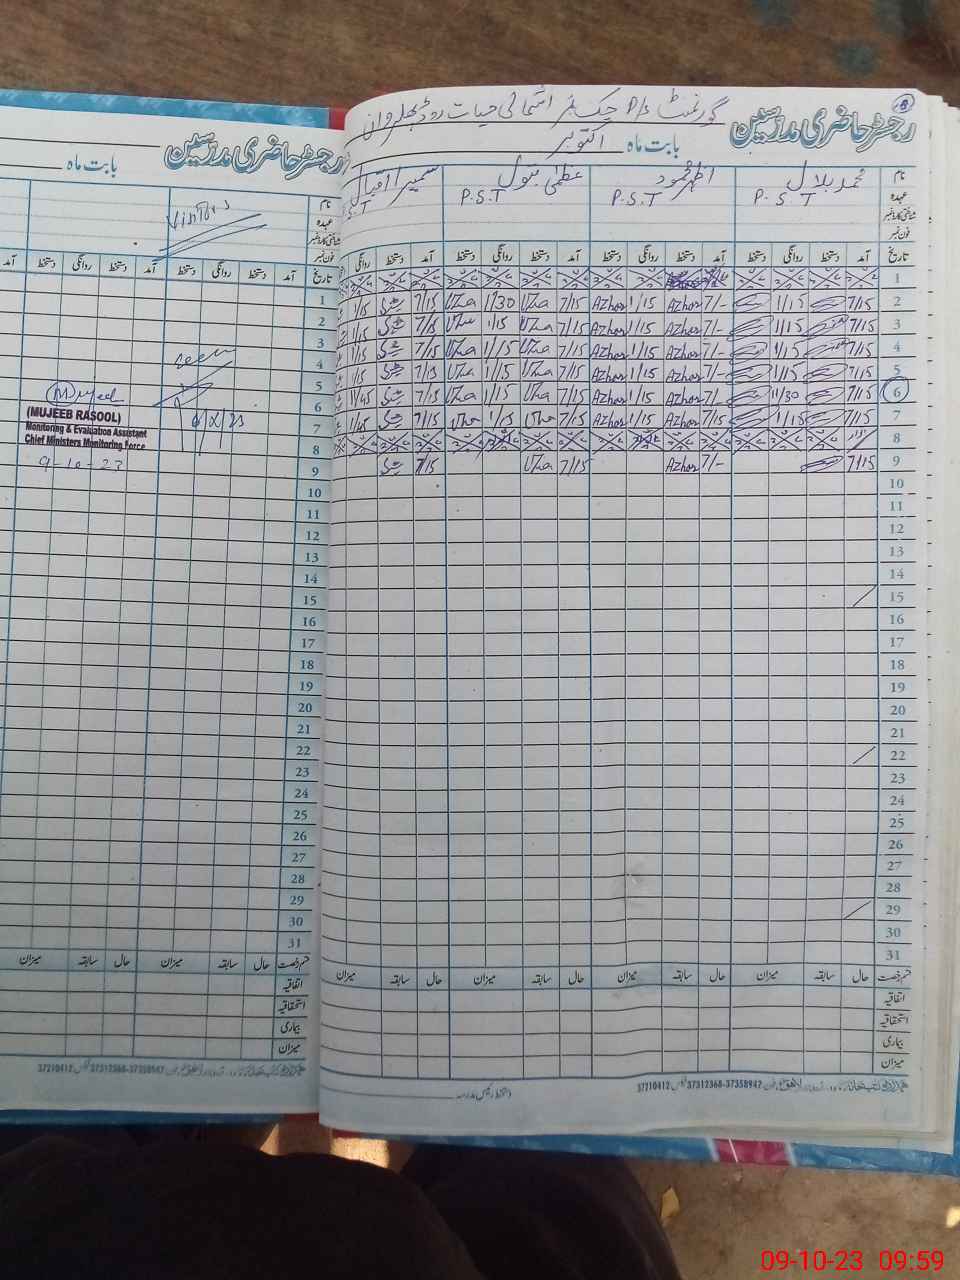 رجسٹر حاضری مدرسین
گورنمنٹ P/S چک نمبر شمالی حیات روڈ بھلروان
بابت ماہ اکتوبر
نام
محمد بلال
اظہر محمود
عظمیٰ بتول
سمیرا اقبال
عہدہ
P.S.T
P.S.T
P.S.T
S.T
شناختی کارڈ نمبر
فون نمبر
تاریخ آمد دستخط روانگی دستخط آمد دستخط روانگی دستخط آمد دستخط روانگی دستخط آمد دستخط روانگی
1
2 7/15 1/15 7/- Azhar 1/15 Azhar 7/15 Uza 1/30 Uza 7/15 1/15
3 7/15 1/15 7/- Azhar 1/15 Azhar 7/15 Uza 1/15 Uza 7/15 1/15
4 7/15 1/15 7/- Azhar 1/15 Azhar 7/15 Uza 1/15 Uza 7/15 1/15
5 7/15 1/15 7/- Azhar 1/15 Azhar 7/15 Uza 1/15 Uza 7/15 1/15
6 7/15 11/30 7/- Azhar 1/15 Azhar 7/15 Uza 1/15 Uza 7/15 11/45
7 7/15 1/15 7/15 Azhar 1/15 Azhar 7/15 Uza 1/15 Uza 7/15 1/45
8 اتوار
9 7/15 7/- Azhar 7/15 Uza 7/15
10
11
12
13
14
15
16
17
18
19
20
21
22
23
24
25
26
27
28
29
30
31
قسم رخصت حال سابقہ میزان حال سابقہ میزان حال سابقہ میزان
اتفاقیہ
استحقاقیہ
بیماری
میزان
37210412 37312368-37358947
دستخط رئیس مدرسہ
رجسٹر حاضری مدرسین
بابت ماہ
نام
عہدہ
شناختی کارڈ نمبر
فون نمبر
Visitors
تاریخ آمد دستخط روانگی دستخط آمد دستخط روانگی دستخط آمد
1
2
3
4
5
6
7
8
9
10
11
12
13
14
15
16
17
18
19
20
21
22
23
24
25
26
27
28
29
30
31
seen
Mujeeb
(MUJEEB RASOOL)
Monitoring & Evaluation Assistant
Chief Ministers Monitoring Force
9-10-23
قسم رخصت حال سابقہ میزان حال سابقہ میزان
اتفاقیہ
استحقاقیہ
بیماری
میزان
37210412 37312368-37358947
09-10-23 09:59